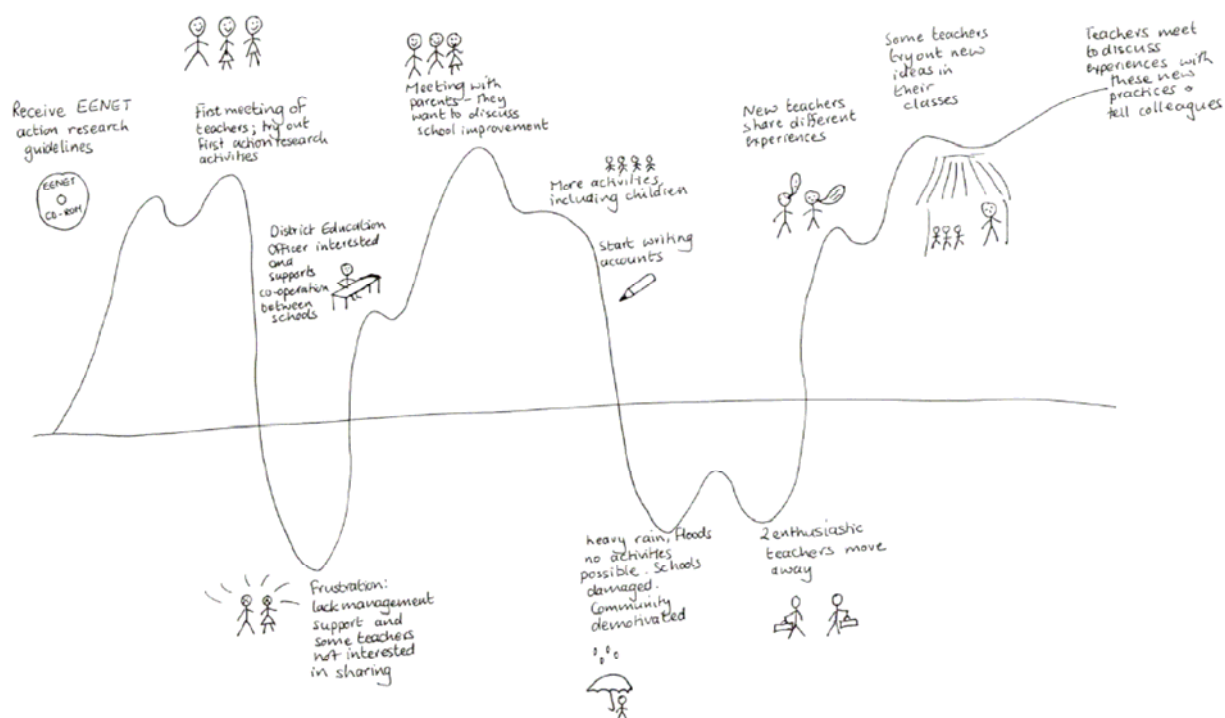 Receive EENET
action research
guidelines
EENET
CD-ROM
First meeting of
teachers; try out
first action research
activities
District Education
Officer interested
and
supports
co-operation
between
schools
Frustration:
lack management
support and
some teachers
not interested
in sharing
Meeting with
parents – they
want to discuss
school improvement
More activities,
including children
start writing
accounts
heavy rain, floods
no activities
possible. Schools
damaged.
Community
demotivated
2 enthusiastic
teachers move
away
New teachers
share different
experiences
Some teachers
try out new
ideas in
their
classes
Teachers meet
to discuss
experiences with
these new
practices &
tell colleagues